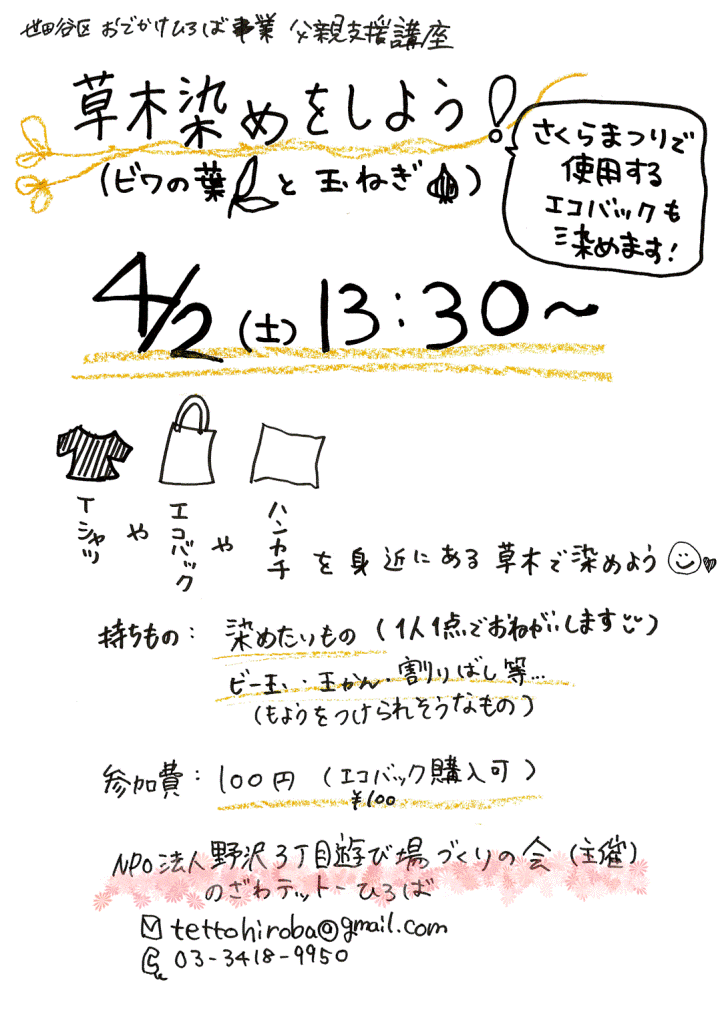 世田谷区 おでかけひろば事業 父親支援講座
草木染めをしよう!
(ビワの葉と玉ねぎ)
さくらまつりで
使用する
エコバックも
染めます!
4/2(土)13:30〜
Tシャツやエコバックやハンカチを身近にある草木で染めよう
持ちもの: 染めたいもの(1人1点でおねがいします)
ビー玉・玉かん・割りばし等…
(もようをつけられそうなもの)
参加費: 100円(エコバック購入可)
¥100
NPO法人野沢3丁目遊び場づくりの会(主催)
のざわテットーひろば
tettohiroba@gmail.com
03-3418-9950